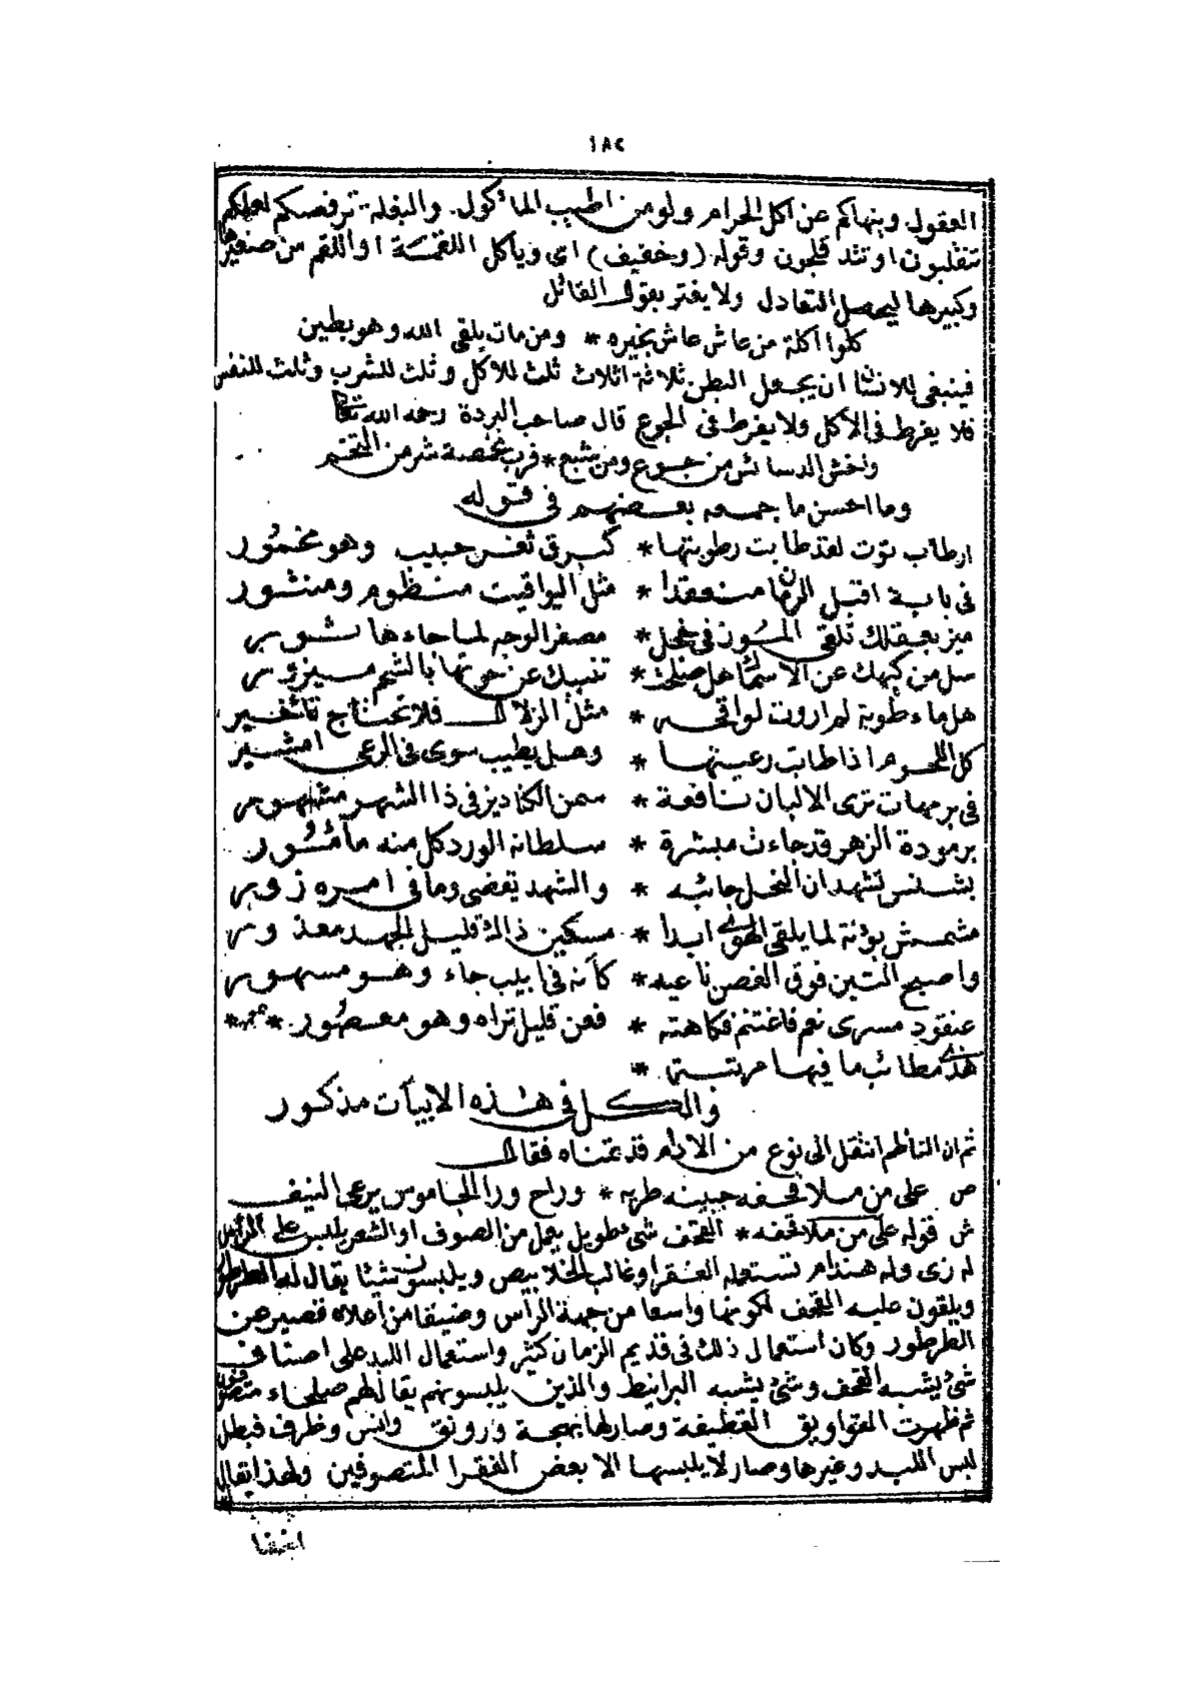 ١٨٢
العقول وينهاكم عن اكل الحرام ولو من اطيب المأكول. والبغلة ترفصكم لعلكم
تنقلبون او تشد فلجون وقوله (وخفيف) اى ويأكل اللقمة او اللقم من صغيرها
وكبيرها ليحصل التعادل ولا يغتر بقول القائل
كلوا اكلة من عاش عاش بخيره * ومن مات يلقى الله وهو بطين
فينبغى للانسان ان يجعل البطن ثلاثة اثلاث ثلث للاكل وثلث للشرب وثلث للنفس
فلا يفرط فى الاكل ولا يفرط فى الجوع قال صاحب البردة رحمه الله تعالى
واخش الدسائس من جوع ومن شبع * فرب مخمصة شر من التخم
وما احسن ما جمعه بعضهم فى قوله
ارطاب توت لقد طابت رطوبتها * كبرق ثغر حبيب وهو مخمور
فى بابة اقبل الرمان منعقدا * مثل اليواقيت منظوم ومنثور
ميز بعقلك تلقى الموز فى خجل * مصفر الوجه لما جاء هاتور
سل من كيهك عن الاسماك هل صلحت * تنبيك عن حوتها بالشم ميزور
هل ماء طوبة لم اروت لواقحه * مثل الزلال فلا تحتاج تأخير
كل اللحوم اذا طابت رعيتها * وهل يطيب سوى فى الرعى امشير
فى برمهات ترى الالبان نافعة * سمن الكاديز فى ذا الشهر مشهور
برمودة الزهر قد جاءت مبشرة * سلطانه الورد كل منه مأثور
بشنس تشهد ان النحل جائبه * والشهد يقضى وما فى امره زور
مشمش بؤنة لما يلقى الهوى ابدا * مسكين ذاك قليل الجهد معذور
واصبح التين فوق الغصن ناعيه * كأنه فى ابيب جاء وهو مسهور
عنقود مسرى نعم فاغتنم فكاهته * فعن قليل تراه وهو معصور *
هذى مطائب ما فيها مرتبة *
والكل فى هذه الابيات مذكور
ثم ان الناظم انتقل الى نوع من الادام قد عتناه فقال
ص على من ملا قحفه جبينه طريه * وراح ورا الجاموس يرعى النيف
ش قوله على من ملا قحفه * القحف شئ طويل يعمل من الصوف او الشعر يلبس على الرأس
له زى وله هندام تستعمله الفقرا وغالب الخلابيص ويلبسون شيئا يقال له الطرطور
ويلقون عليه القحف لكونها واسعا من جهة الرأس وضيقا من اعلاه قصير عن
الطرطور وكان استعمال ذلك فى قديم الزمان كثير واستعمال اللبد على اصناف
شئ يشبه القحف وشئ يشبه البرانيط والذين يلبسونهم يقال لهم صلحاء متصوفون
ثم ظهرت القواويق القطيفة وصار لها بهجة ورونق وانس وظرف فبطل
لبس اللبد وغيرها وصار لا يلبسها الا بعض الفقرا المتصوفين ولهذا يقال